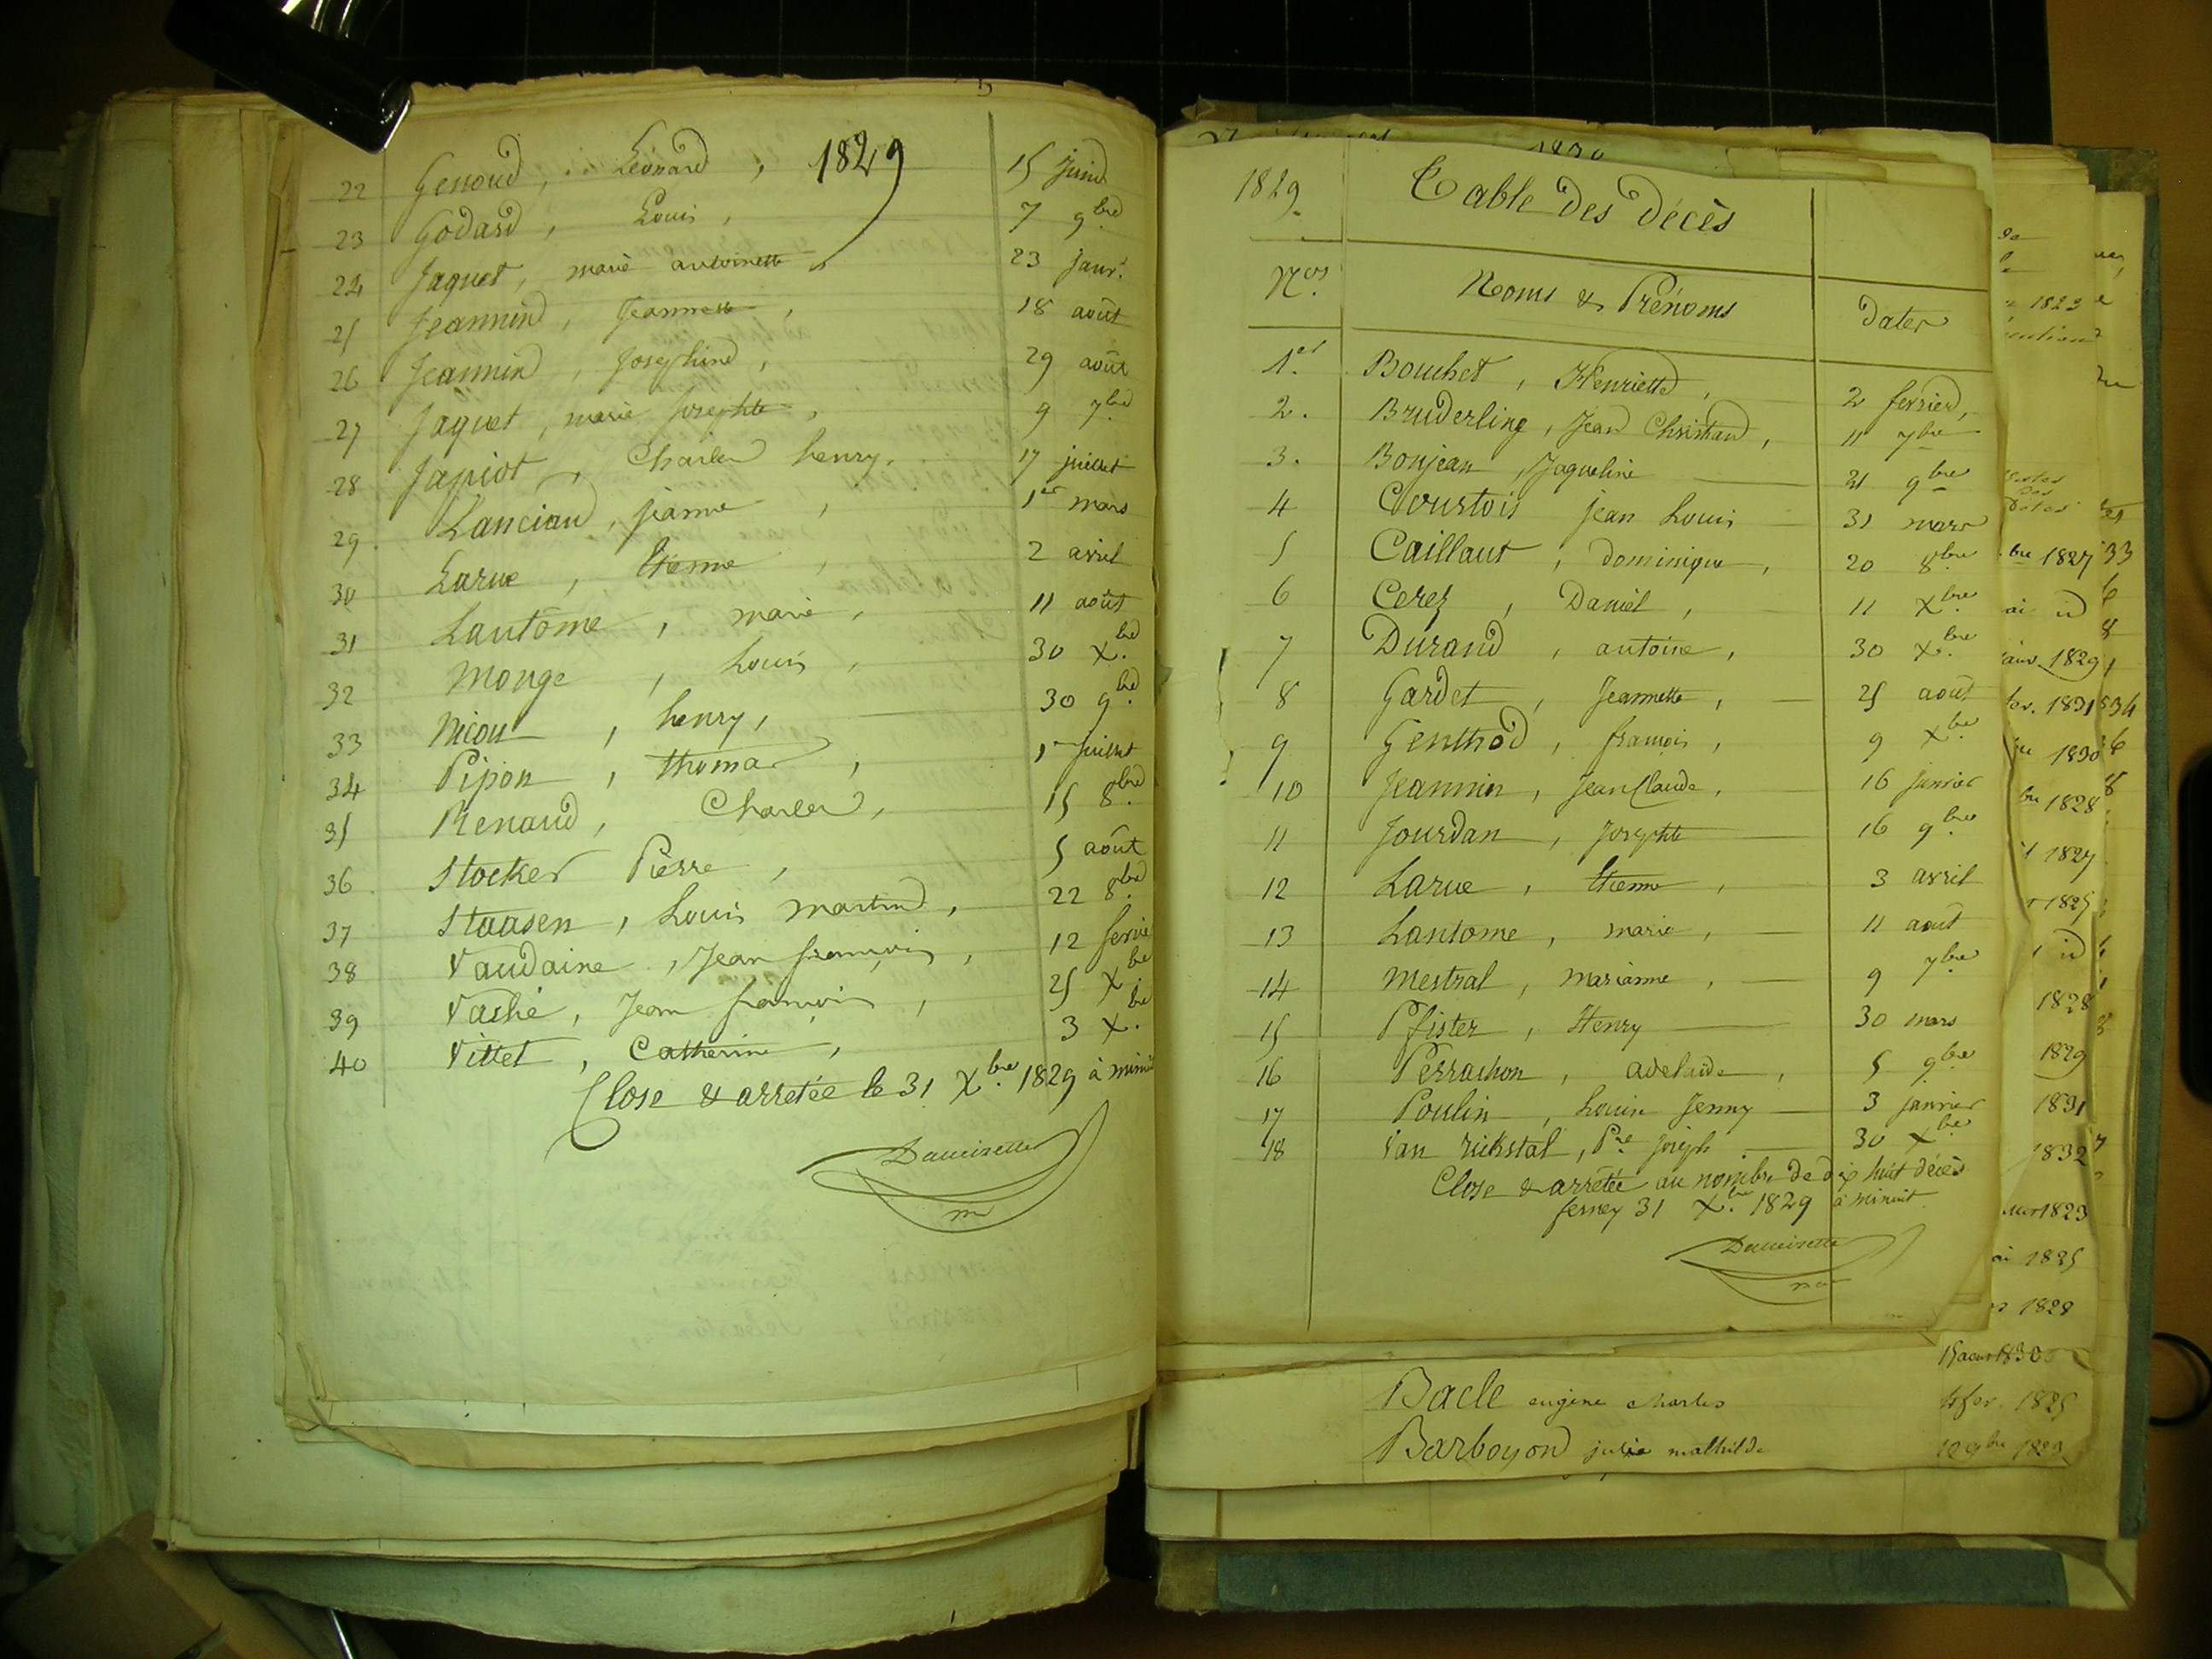 1829
22 Genoud, Léonard, 15 juin
23 Godard, Louis, 7 9bre
24 Jaquet, marie antoinette 23 janr.
25 Jeannin, Jeannette, 18 août
26 Jeannin, Josephine, 29 août
27 Jaquet, marie Josephte, 9 7bre
28 Japiot, Charles henry, 17 juillet
29. Lanciau, jeanne, 1er mars
30 Larue, Etienne, 2 avril
31 Lantôme, marie, 11 août
32 Monge, Louis, 30 Xbre
33 Nicou, henry, 30 9bre
34 Pipon, thomas, 1er juillet
35 Renaud, Charles, 15 8bre
36. Stocker Pierre, 5 août
37 Staasen, Louis Martin, 22 8bre
38 Vaudaine, Jean françois, 12 fevrie
39 Vaché, Jean françois, 25 Xbre
40 Vittet, Catherine, 3 Xbre
Close & arretée le 31 Xbre 1829 à minuit
1830
1829. Table des décès
Nos. Noms & Prénoms Dates
1er. Bouchet, Henriette, 2 fevrier,
2. Bruderling, Jean Christian, 11 7bre
3. Bonjean, Jaqueline 21 9bre
4 Courtois jean Louis 31 mars
5 Caillaut, dominique, 20 8bre
6 Cerez, Daniel, 11 Xbre
7 Durand, antoine, 30 Xbre
8 Gardet, Jeannette, 25 août
9 Genthod, françois, 9 Xbre
10 Jeannin, Jean Claude, 16 janvier
11 Jourdan, Josephte 16 9bre
12 Larue, Etienne, 3 avril
13 Lantome, marie, 11 aout
14 Mestral, marianne, 9 7bre
15 Pfister, Henry 30 mars
16 Perrachon, adelaide, 5 9bre
17 Poulin, Louise Jenny 3 janvier
18 Van rickstal, Pre joseph 30 Xbre
Close & arretée au nombre de dix huit décès
ferney 31 Xbre 1829 à minuit
Bacle eugène charles fev. 1825
Barboyon julie mathilde
1823
bre 1827
1829
1831
1830
1828
1827
1825
1828
1829
1831
1832
1823
1825
1828